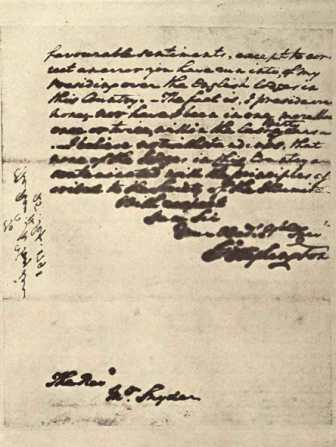 favourable sentiments, except to cor-
rect an error you have run into, of my
Presiding over the English lodges in
this Country. The fact is, I preside over
none, nor have I been in one, more than
once or twice, within the last thirty years.
I believe notwithstanding, that
none of the Lodges in this Country are
contaminated with the principles as-
cribed to the Society of the Illuminati.
With respect
I am Sir
Your Obedt Hble Ser
G Washington
The Revd
Mr Snyder